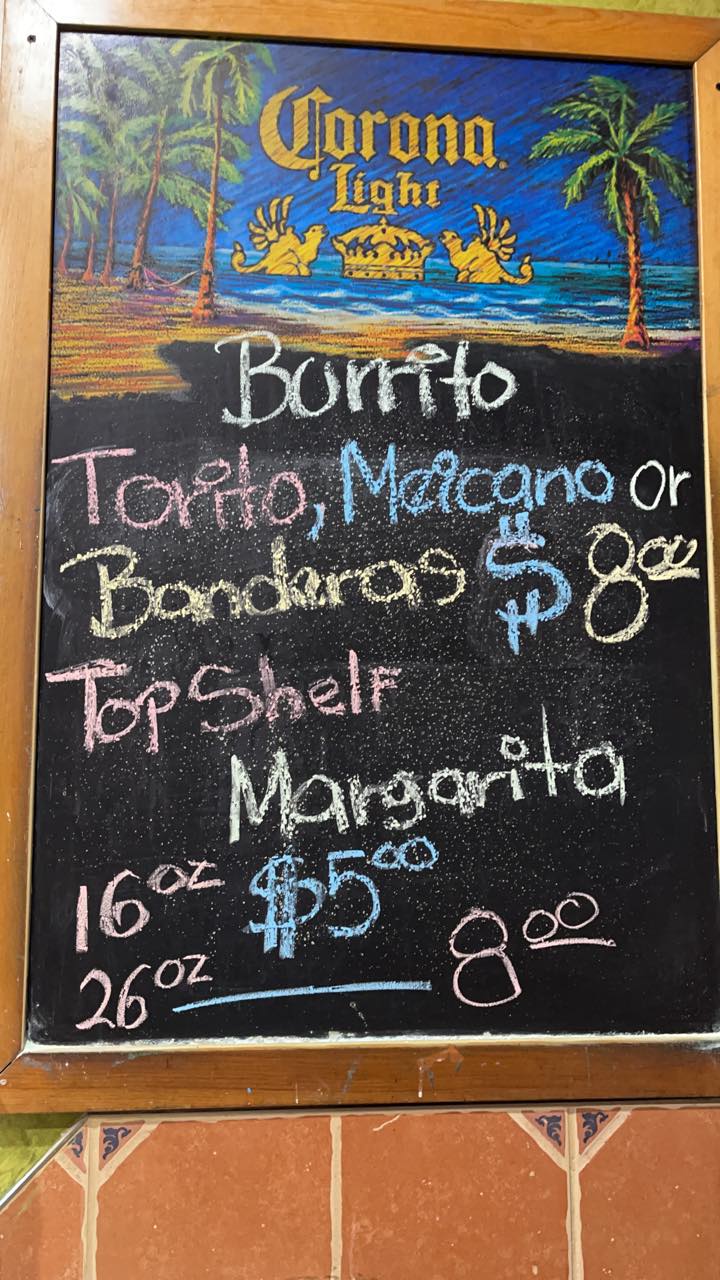 Corona
Light
Burrito
Torito, Meicano or
Banderas $ 8.00
Top Shelf
Margarita
16 oz $5.00
26 oz 8.00